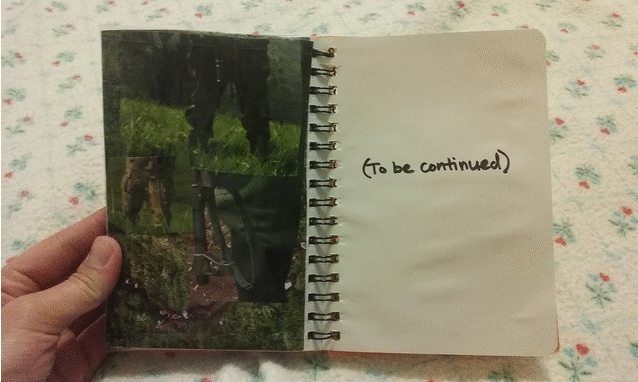 (To be continued)